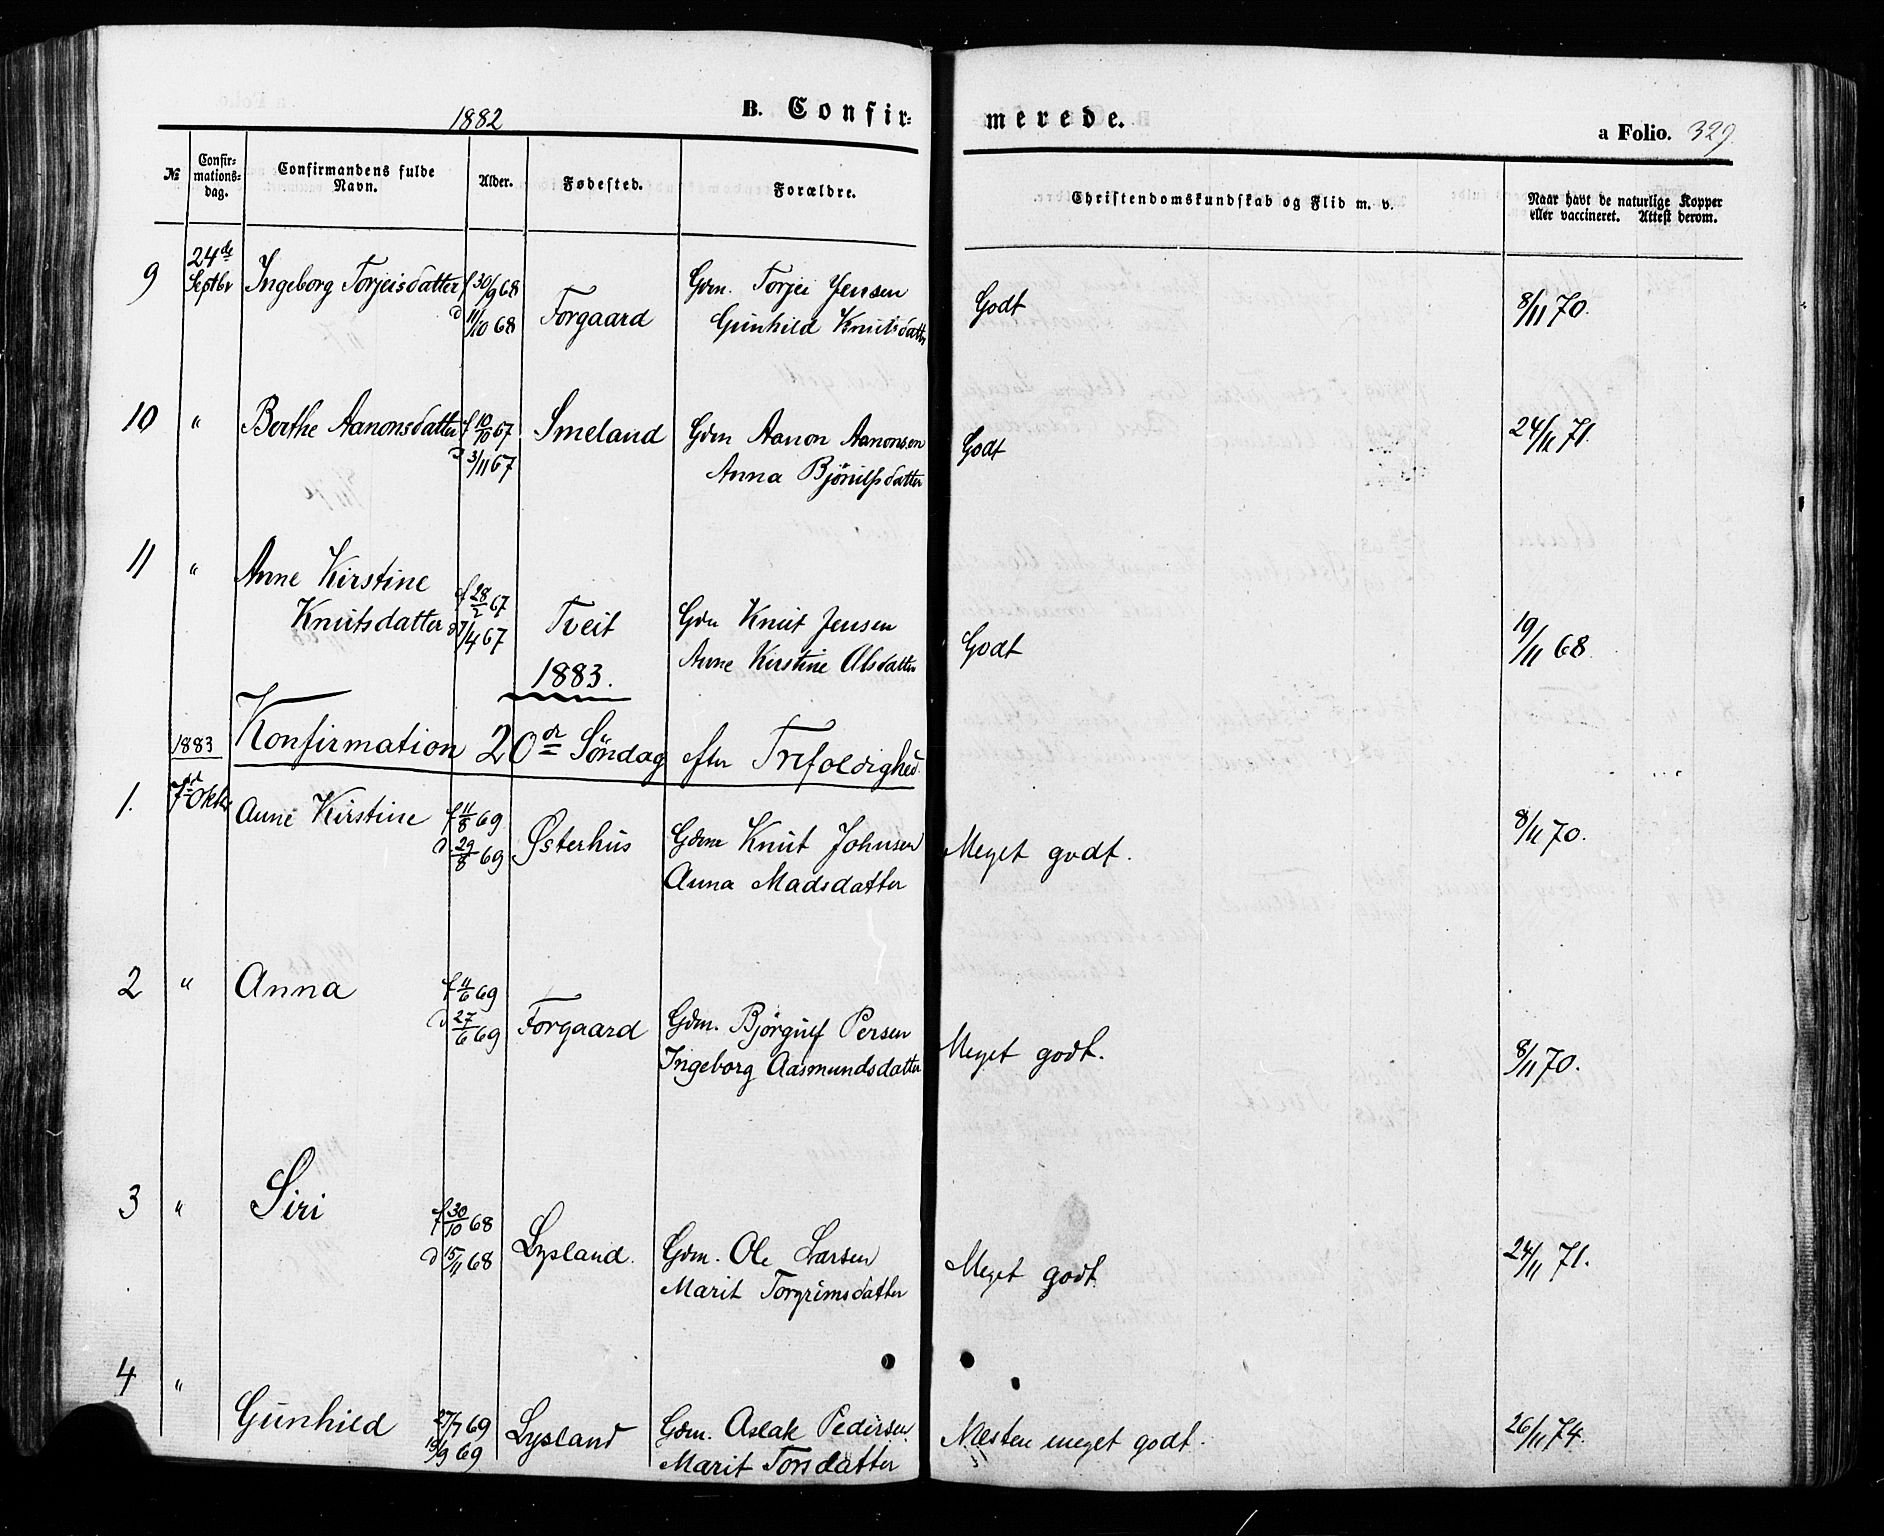 1882 B. Confirmerede. a Folio. 329
№ Confirmationsdag. Confirmandens fulde Navn. Alder. Fødested. Forældre. Christendomskundskab og Flid m. v. Naar havt de naturlige Kopper eller vaccineret. Attest derom.
9 24de Septbr Ingeborg Torjeisdatter f 30/9 68 Gdm. Torjei Jensen
d 11/10 68 Forgaard Gunhild Knutsdatter Godt 8/11 70.
10 " Berthe Aanonsdatter f 10/10 67 Smeland Gdm Aanon Aanonsen Godt 24/11 71.
d 3/11 67 Anna Bjönulfsdatter
11 " Anne Kirstine f 28/2 67
Knutsdatter d 7/4 67 Tveit Gdm Knut Jensen Godt 19/11 68
Anne Kirstine Olsdatter
1883.
1883 Konfirmation 20de Söndag efter Trefoldighed.
1. 7de Oktbr Anne Kirstine f 11/8 69 Østerhus Gdmn Knut Johnsen Meget godt. 8/11 70.
d. 29/8 69 Anna Madsdatter
2 " Anna f 11/6 69
d 27/6 69 Forgaard Gdm. Björgulf Persen Meget godt. 8/11 70.
Ingeborg Aasmundsdatter
3 " Siri f 30/10 68
d 15/11 68 Lysland. Gdm. Ole Larsen Meget godt. 24/11 71.
Marit Torgrimsdatter
4 " Gunhild 27/7 69 Lysland Gdm. Aslak Pedersen Næsten meget godt. 26/11 74.
19/9 69 Marit Torsdatter